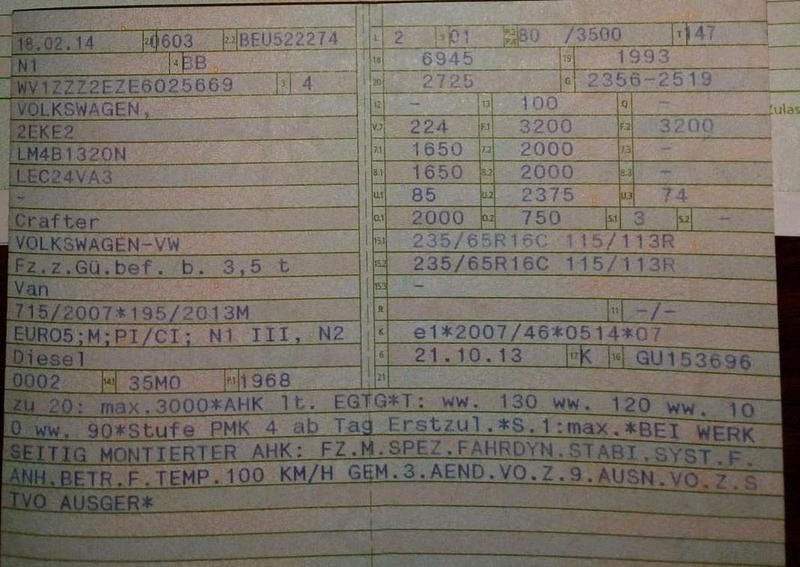 18.02.14 0603 2.2 BEU522274
N1 4 BB
WV1ZZZ2EZE6025669 3 4
VOLKSWAGEN,
2EKE2
LM4B1320N
LEC24VA3
-
Crafter
VOLKSWAGEN-VW
Fz.z.Gü.bef. b. 3,5 t
Van
715/2007*195/2013M
EURO5;M;PI/CI; N1 III, N2
Diesel
0002 14.1 35M0 P.1 1968
L 2 9 01 80 /3500 T 147
18 6945 19 1993
20 2725 G 2356-2519
12 - 13 100 Q -
V.7 224 F.1 3200 F.2 3200
7.1 1650 7.2 2000 7.3 -
8.1 1650 8.2 2000 8.3 -
U.1 85 U.2 2375 U.3 74
O.1 2000 O.2 750 S.1 3 S.2 -
15.1 235/65R16C 115/113R
15.2 235/65R16C 115/113R
15.3 -
R 11 -/-
K e1*2007/46*0514*07
6 21.10.13 17 K 16 GU153696
21
zu 20: max.3000*AHK lt. EGTG*T: ww. 130 ww. 120 ww. 10
0 ww. 90*Stufe PMK 4 ab Tag Erstzul.*S.1:max.*BEI WERK
SEITIG MONTIERTER AHK: FZ.M.SPEZ.FAHRDYN.STABI.SYST.F.
ANH.BETR.F.TEMP.100 KM/H GEM.3.AEND.VO.Z.9.AUSN.VO.Z.S
TVO AUSGER*